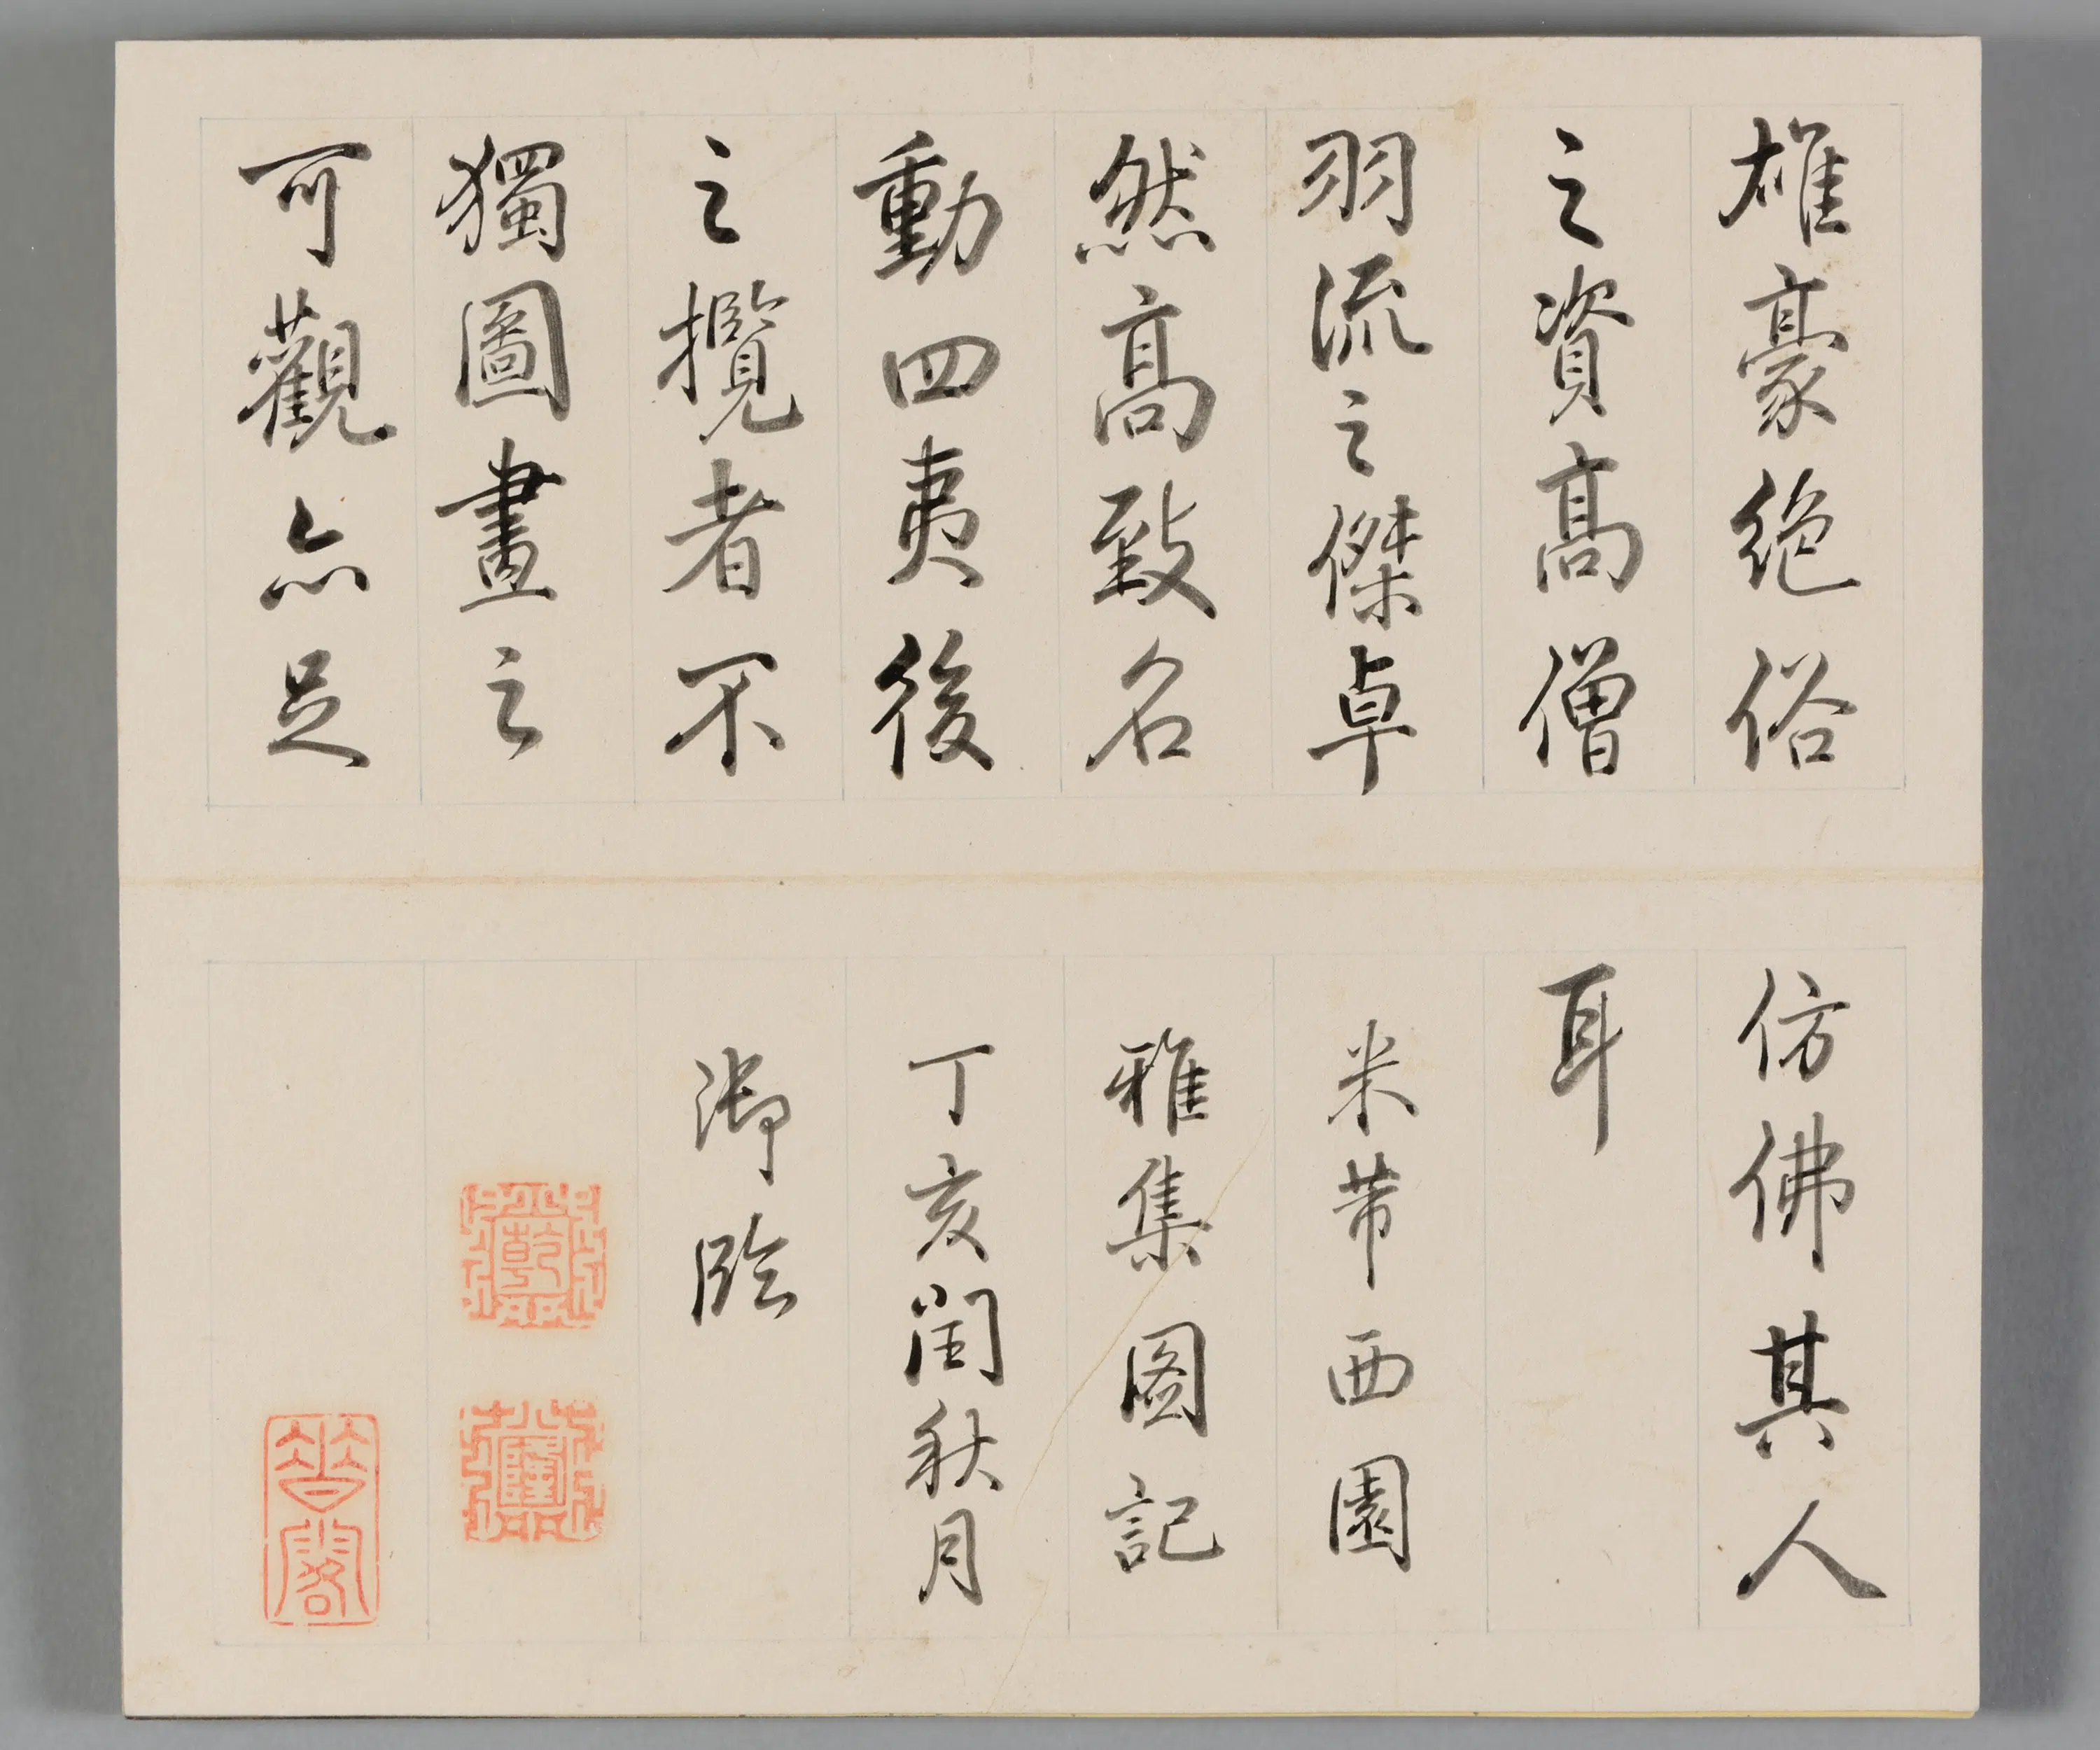 雄豪絕俗
之資高僧
羽流之傑卓
然高致名
動四夷後
之攬者不
獨圖畫之
可觀亦足
仿佛其人
耳
米芾西園
雅集圖記
丁亥閏秋月
御臨
乾
隆